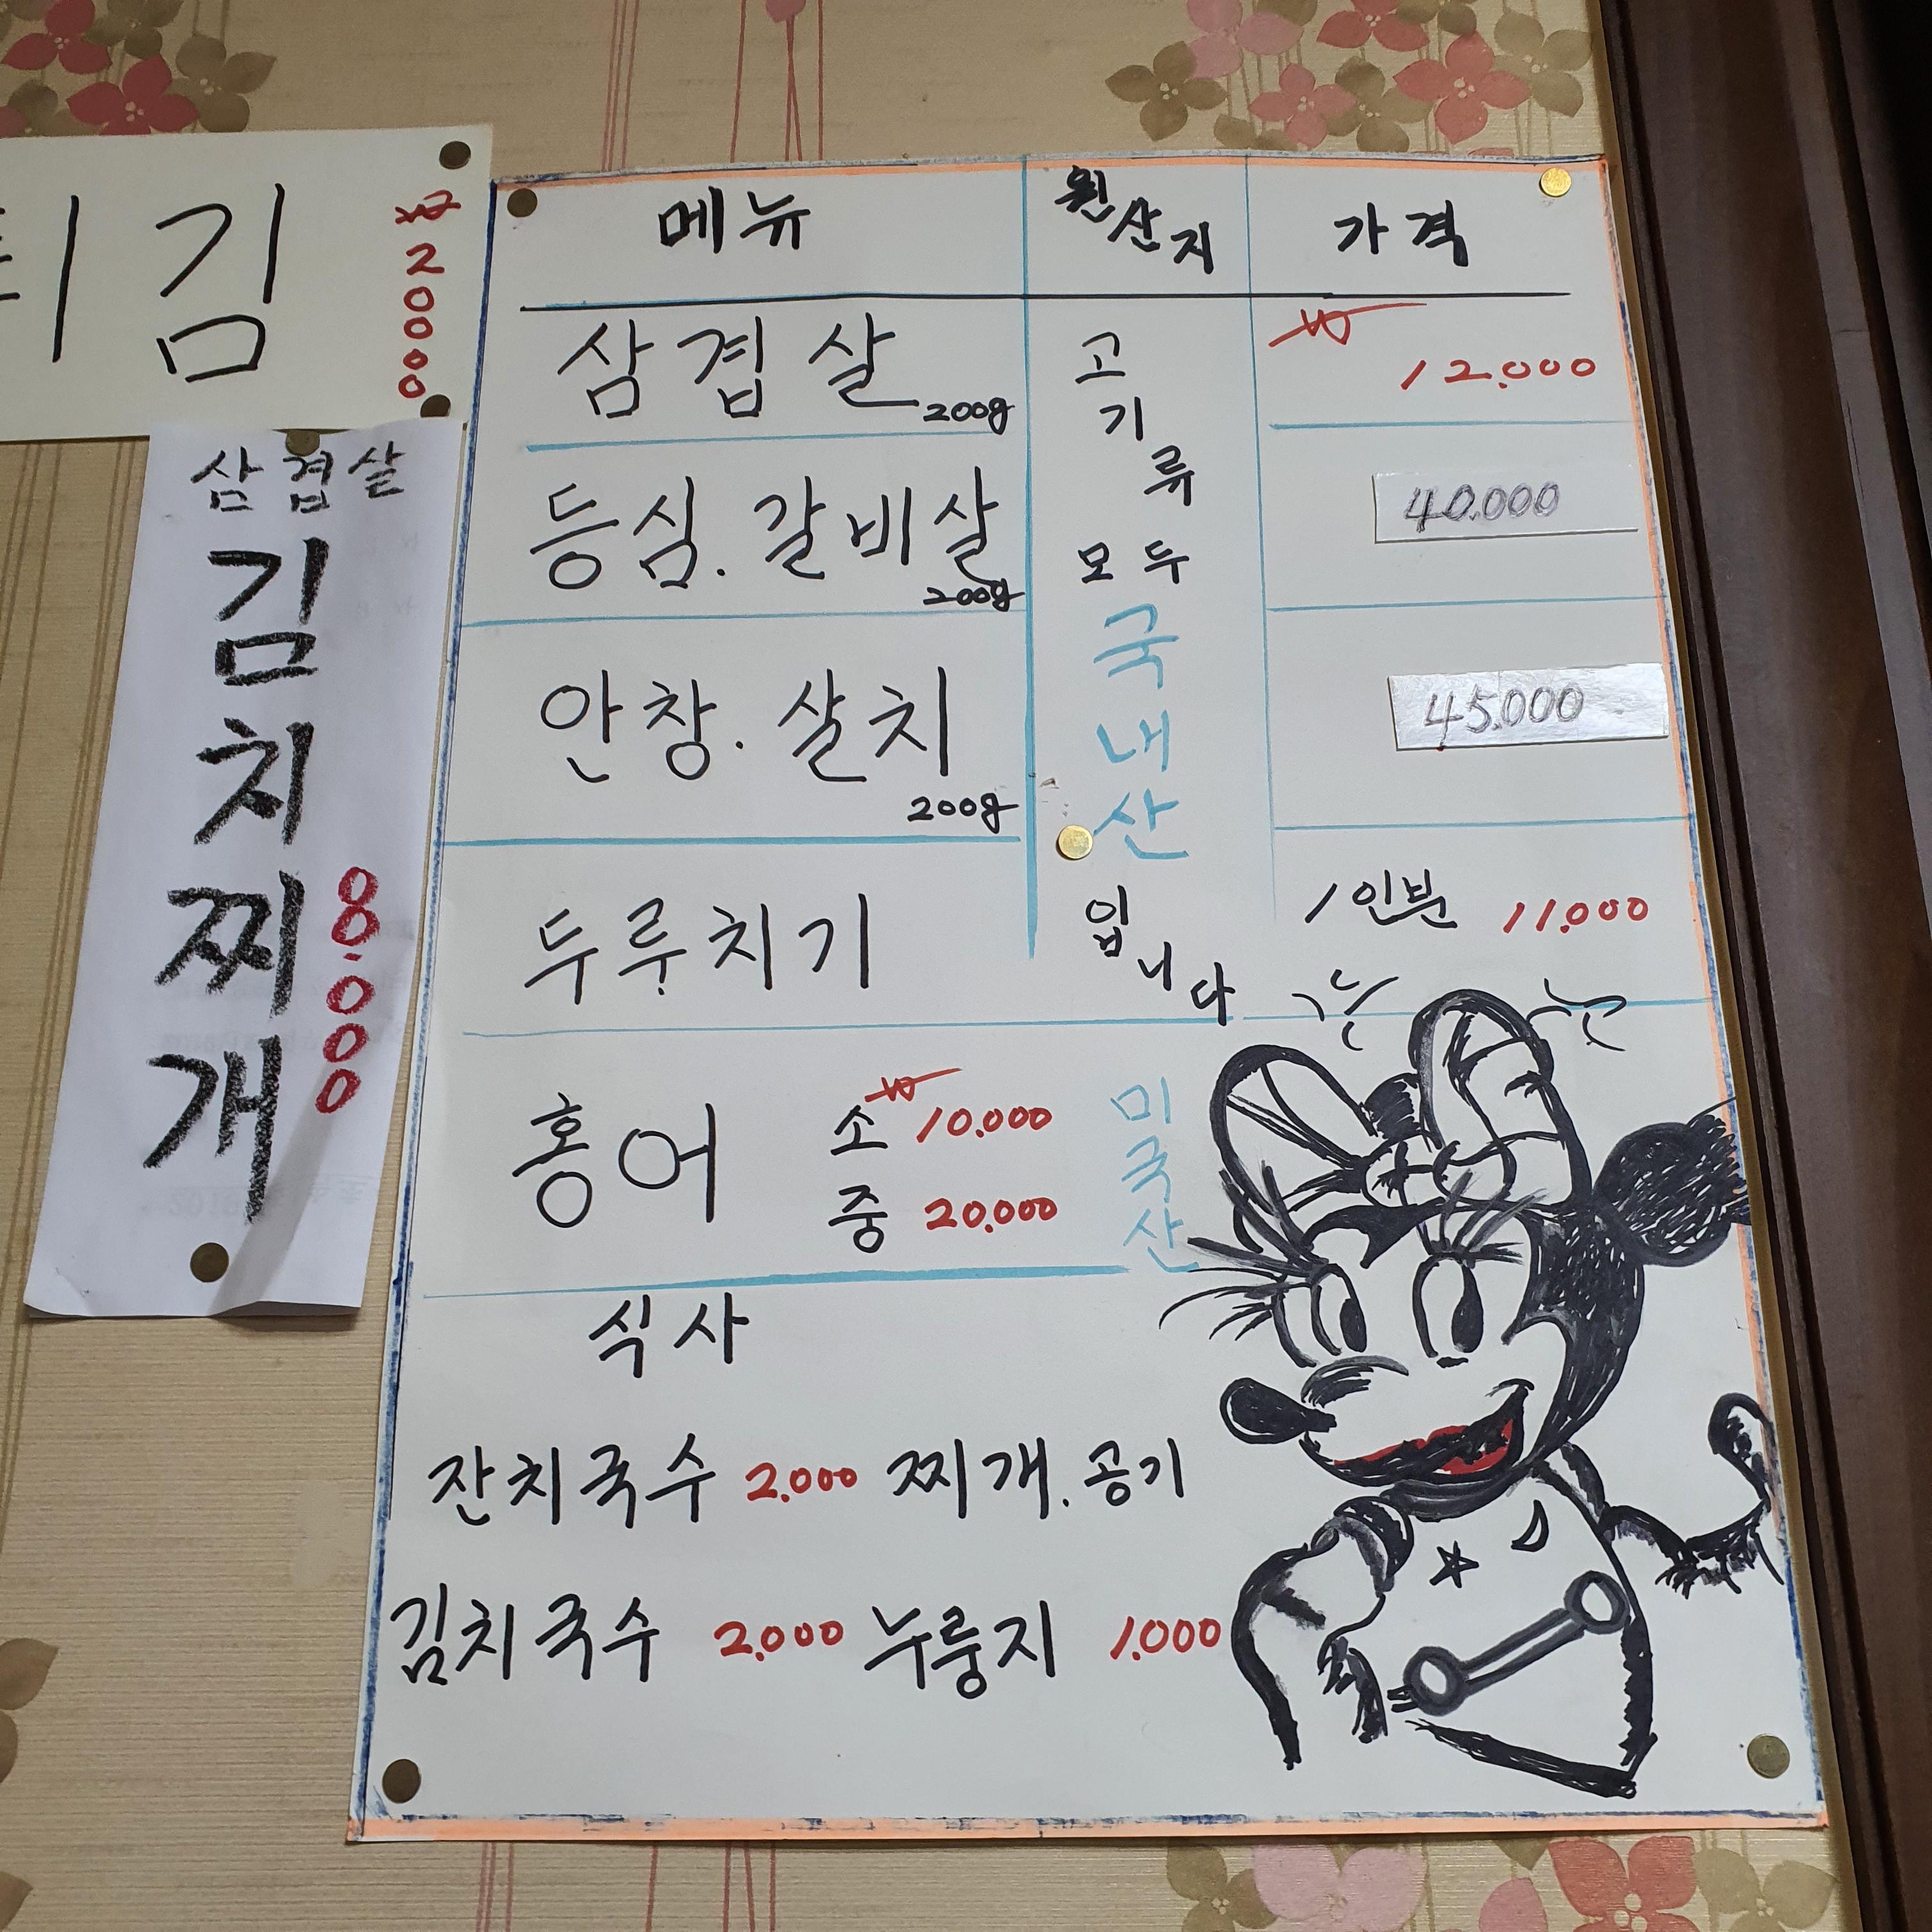 튀김
₩ 20000
삼겹살
김치찌개
8.000
메뉴 원산지 가격
삼겹살 200g ₩ 12.000
등심.갈비살 200g 40.000
안창.살치 200g 45.000
두루치기 1인분 11.000
고기류 모두 국내산 입니다
홍어 소 ₩ 10.000 미국산
중 20.000
식사
잔치국수 2.000 찌개.공기
김치국수 2.000 누룽지 1.000